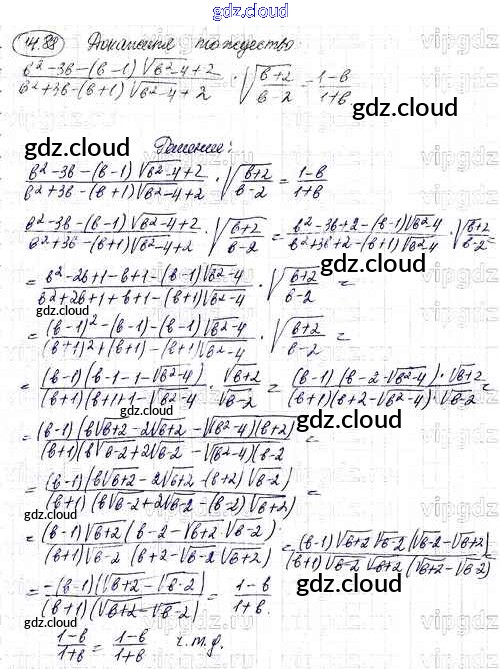 gdz.cloud
14.88 Докажите тождество
(b²-3b-(b-1)√(b²-4)+2)/(b²+3b-(b+1)√(b²-4)+2) · √((b+2)/(b-2)) = (1-b)/(1+b)
gdz.cloud
gdz.cloud Решение:
(b²-3b-(b-1)√(b²-4)+2)/(b²+3b-(b+1)√(b²-4)+2) · √((b+2)/(b-2)) = (1-b)/(1+b)
gdz.cloud
(b²-3b-(b-1)√(b²-4)+2)/(b²+3b-(b+1)√(b²-4)+2) · √((b+2)/(b-2)) = (b²-3b+2-(b-1)√(b²-4))/(b²+3b+2-(b+1)√(b²-4)) · √((b+2)/(b-2)) =
gdz.cloud
= (b²-2b+1-b+1-(b-1)√(b²-4))/(b²+2b+1+b+1-(b+1)√(b²-4)) · √((b+2)/(b-2)) =
gdz.cloud
= ((b-1)²-(b-1)-(b-1)√(b²-4))/((b+1)²+(b+1)-(b+1)√(b²-4)) · √((b+2)/(b-2)) =
gdz.cloud
= ((b-1)(b-1-1-√(b²-4)))/((b+1)(b+1+1-√(b²-4))) · √(b+2)/√(b-2) = ((b-1)(b-2-√(b²-4))·√(b+2))/((b+1)(b+2-√(b²-4))·√(b-2)) =
gdz.cloud
gdz.cloud
= ((b-1)(b√(b+2)-2√(b+2)-√((b²-4)(b+2))))/((b+1)(b√(b-2)+2√(b-2)-√((b²-4)(b-2)))) =
gdz.cloud
= ((b-1)(b√(b+2)-2√(b+2)-(b+2)√(b-2)))/((b+1)(b√(b-2)+2√(b-2)-(b-2)√(b+2))) =
gdz.cloud
gdz.cloud
= ((b-1)√(b+2)(b-2-√(b+2)√(b-2)))/((b+1)√(b-2)(b+2-√(b-2)√(b+2))) = ((b-1)√(b+2)√(b-2)(√(b-2)-√(b+2)))/((b+1)√(b-2)√(b+2)(√(b+2)-√(b-2))) =
gdz.cloud
= (-(b-1)(√(b+2)-√(b-2)))/((b+1)(√(b+2)-√(b-2))) = (1-b)/(1+b)
gdz.cloud
(1-b)/(1+b) = (1-b)/(1+b) ч.т.д.
gdz.cloud